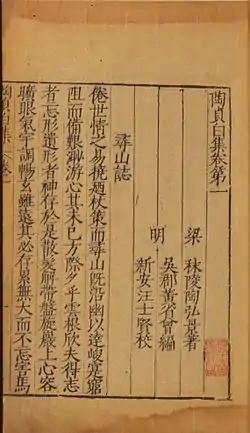 陶貞白集卷第一
梁 秣陵陶弘景著
明 吳郡黃省曾編
新安汪士賢校
尋山誌
倦世情之易撓迺杖策而尋山旣沿幽以達峻寔窮
阻而備艱渺游心其未已方際夕乎雲根欣夫得志
者忘形遺形者神存於是散髮解帶盤旋巖上心容
曠朗氣宇調暢玄雖遠其必存累無大而不忘害馬
陶貞白集 卷一